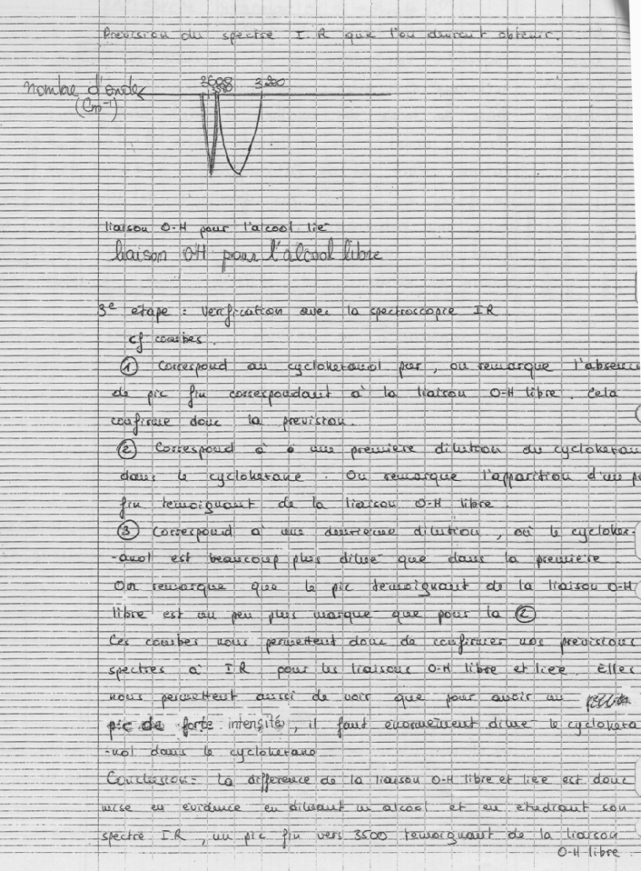 Prevision du spectre I.R que l'on devrait obtenir.
3200
nombre d'onde
(Cm-1)
liaison O-H pour l'alcool lié
liaison OH pour l'alcool libre
3e etape : verification avec la spectroscopie IR
cf courbes.
① Correspond au cyclohexanol pur, on remarque l'absence
de pic fin correspondant à la liaison O-H libre. Cela
confirme donc la prevision.
② Correspond à une première dilution du cyclohexan
dans le cyclohexane. On remarque l'apparition d'un p
fin temoignant de la liaison O-H libre.
③ Correspond à une deuxieme dilution, où le cyclohex-
-anol est beaucoup plus dilué que dans la premiere
On remarque que le pic temoignant de la liaison O-H
libre est un peu plus marqué que pour la ②
Ces courbes nous permettent donc de confirmer nos previsions
spectres à IR pour les liaisons O-H libre et liee. Elles
nous permettent aussi de voir que pour avoir un
pic de forte intensité, il faut enormement dilué le cyclohexa
-nol dans le cyclohexane
Conclusion: La difference de la liaison O-H libre et liée est donc
mise en évidence en diluant un alcool et en etudiant son
spectre IR, un pic fin vers 3500 temoignant de la liaison
O-H libre.